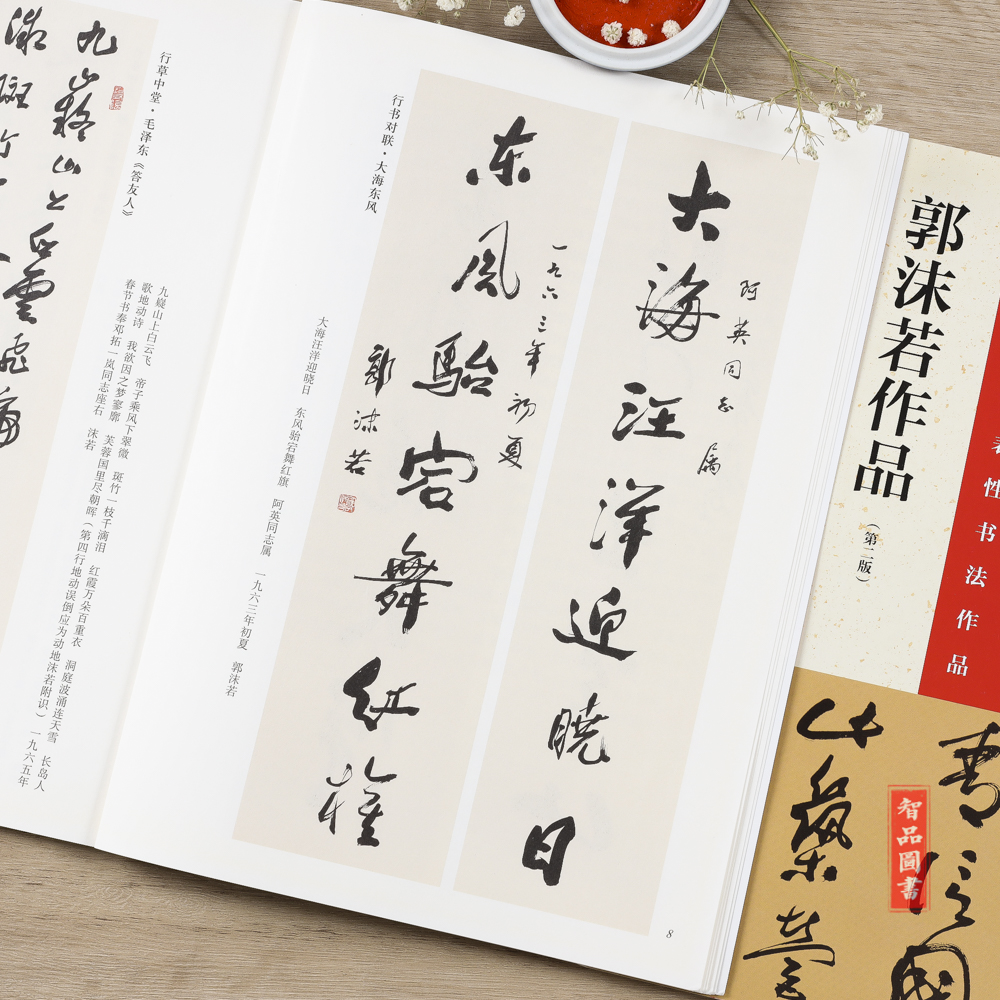 行书对联·大海东风
大海汪洋迎晓日
阿英同志属
东风骀宕舞红旗
一九六三年初夏
郭沫若
大海汪洋迎晓日 东风骀宕舞红旗 阿英同志属 一九六三年初夏 郭沫若
8
行草中堂·毛泽东《答友人》
九嶷山上白云飞 帝子乘风下翠微 斑竹一枝千滴泪 红霞万朵百重衣 洞庭波涌连天雪 长岛人
歌地动诗 我欲因之梦寥廓 芙蓉国里尽朝晖（第四行地动误倒应为动地沫若附识）一九六五年
春节书奉邓拓一岚同志座右 沫若
九嶷山上白雲飛
郭沫若作品
（第二版）
表性书法作品
智品圖書